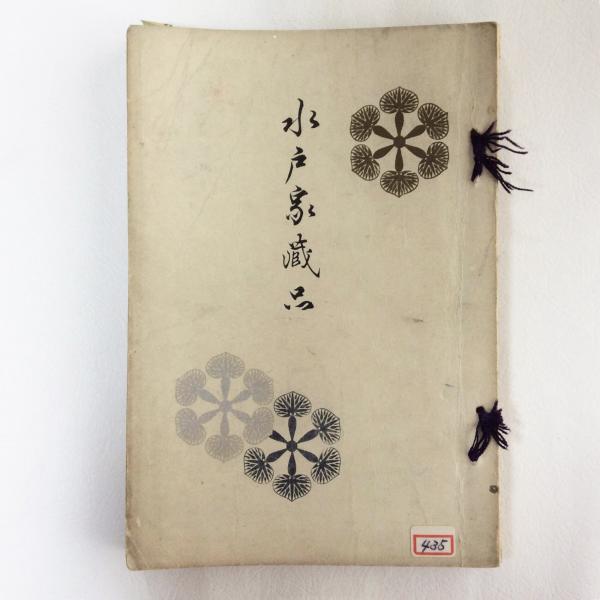 水戸家蔵品
435